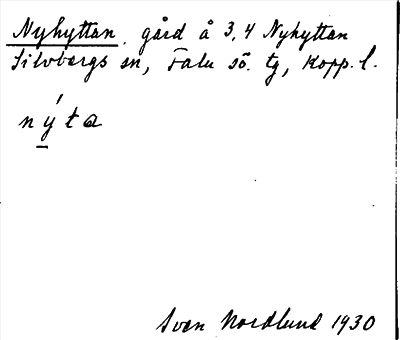 Nyhyttan. gård å 3, 4 Nyhyttan
Silvbergs sn, Falu sö. tg, Kopp. l.
ný̱ta
Sven Nordlund 1930